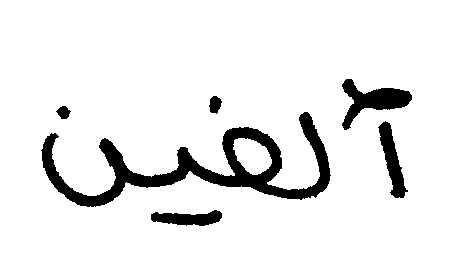 آلفين